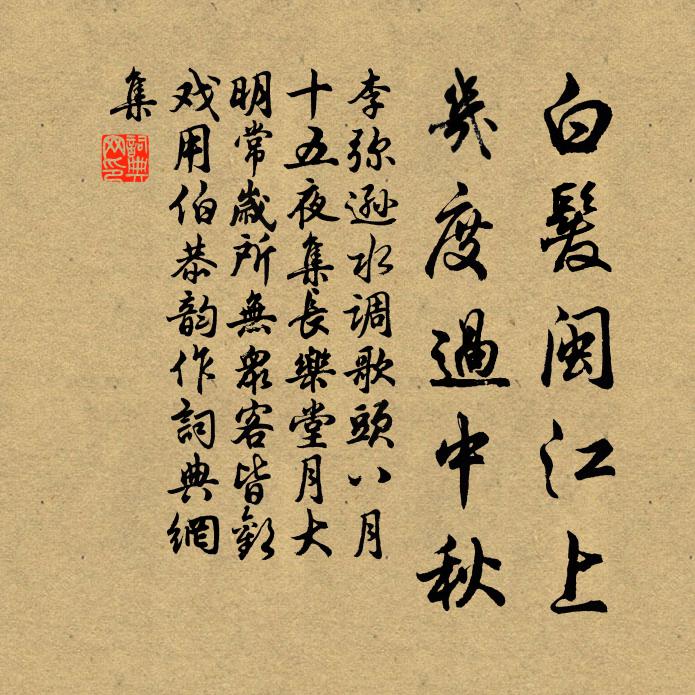 白髮閩江上
幾度過中秋
李弥遜水調歌頭八月
十五夜集長樂堂月大
明常歲所無眾客皆歡
戏用伯恭韵作詞典網
集
詞典网印